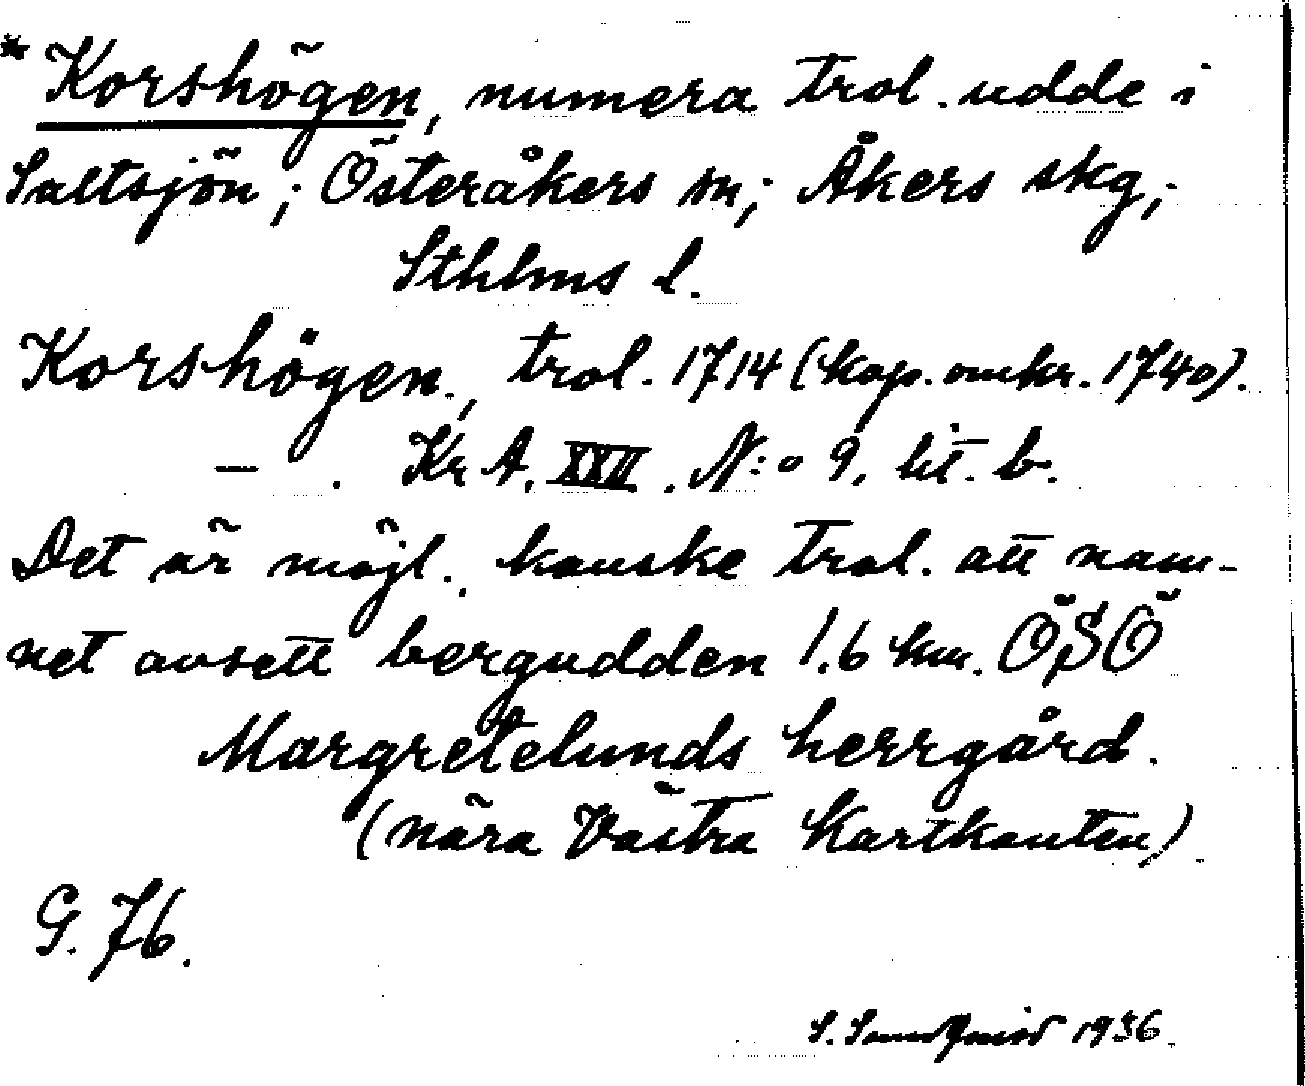 * Korshögen, numera trol. udde i
Saltsjön; Österåkers sn; Åkers skg;
Sthlms l.
Korshögen, trol. 1714 (kop. omkr. 1740).
— . Kr A. XXII. N:o 9, lit. b.
Det är möjl. kanske trol. att nam-
net avsett bergudden 1.6 km. ÖSÖ
Margretelunds herrgård.
(nära Västra Kartkanten)
G. 76.
S. 1936.